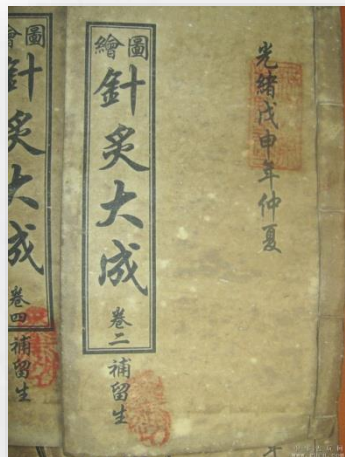 光緒戊申年仲夏
繪圖
針灸大成
卷二
補留生
圖
針灸大成
卷四
補留生